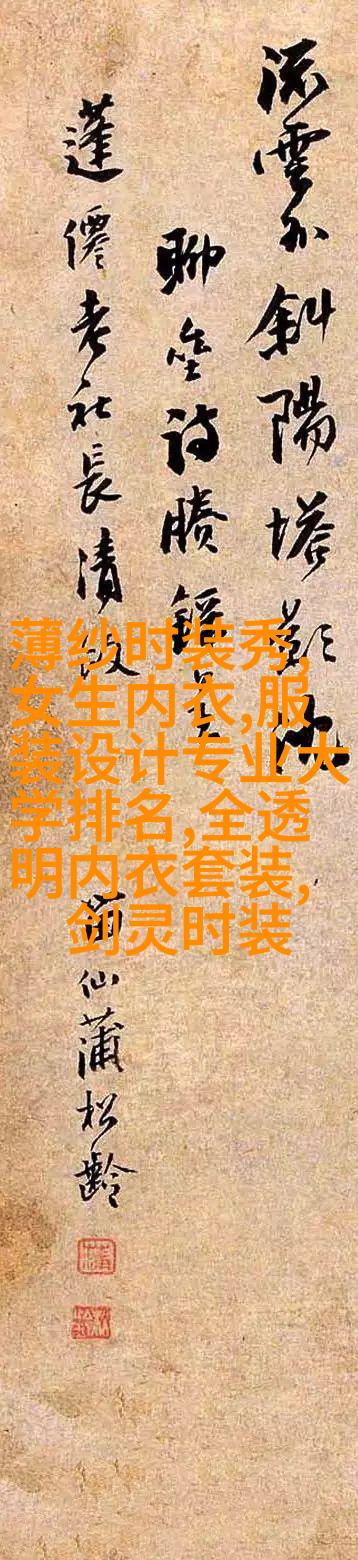 流雲外斜陽塔
聊
詩
蓬僊老社長清
仙蒲松齡
薄纱时装秀,
女生内衣,服
装设计专业大
学排名,全透
明内衣套装,
剑灵时装